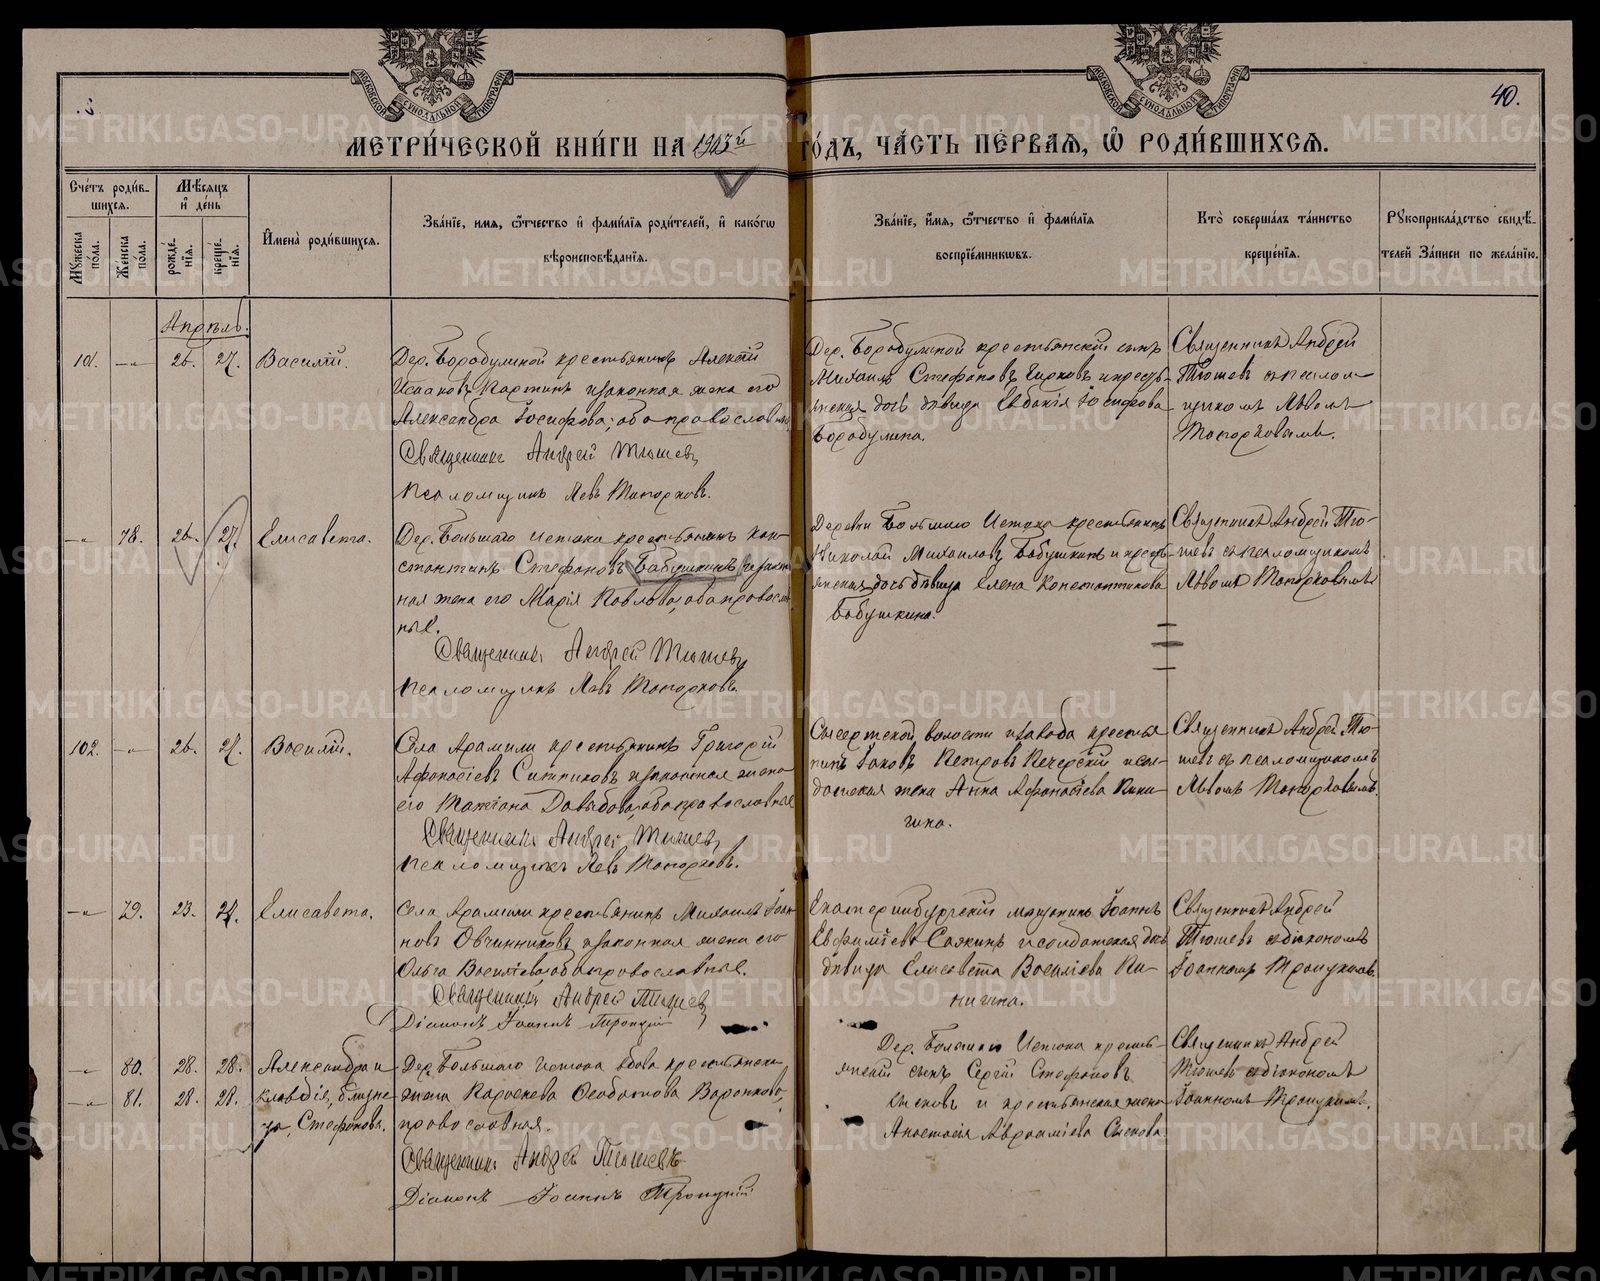 МОСКОВСКОЙ СѴНОДАЛЬНОЙ ТИПОГРАФІИ
МОСКОВСКОЙ СѴНОДАЛЬНОЙ ТИПОГРАФІИ
40.
МЕТРИ́ЧЕСКОЙ КНИ́ГИ НА 1903й ГО́ДЪ, ЧА́СТЬ ПЕ́РВАЯ, Ѡ РОДИ́ВШИХСЯ.
Сче́тъ роди́в-
шихся.
Мꙋ́жеска по́ла.
Же́нска по́ла.
Мѣ́сяцъ
и де́нь
рожде́-нїя.
креще́-нїя.
Имена̀ роди́вшихся.
Зва́нїе, имя, ѻтчество и фами́лїя роди́телей, и како́гѡ
вѣроисповѣ́данїя.
Зва́нїе, имя, ѻтчество и фами́лїя
воспрїе́мникѡвъ.
Кто̀ соверша́лъ та́инство
креще́нїя.
Рꙋкоприкла́дство свидѣ́-
телей за́писи по жела́нїю.
Апрѣль.
101. —"— 26. 27. Василій.
Дер. Бородулиной крестьянинъ Алексій
Исааковъ и законная жена его
Александра Іосифова; оба православные
Священникъ Андрей Тюшевъ
Псаломщикъ Левъ Топорковъ.
Дер. Бородулиной крестьянскій сынъ
Михаилъ Стефановъ и кресть-
янская дочь дѣвица Евдокія Іосифова
Бородулина.
Священникъ Андрей
Тюшевъ съ псалом-
щикомъ Львомъ
Топорковымъ.
—"— 78. 26. 27. Елисавета.
Дер. Большаго Истока крестьянинъ Кон-
стантинъ Стефановъ Бабушкинъ и закон-
ная жена его Марія Павлова, оба православ-
ные.
Священникъ Андрей Тюшевъ
Псаломщикъ Левъ Топорковъ.
Деревни Большаго Истока крестьянинъ
Николай Михаиловъ Бабушкинъ и кресть-
янская дочь дѣвица Елена Константинова
Бабушкина.
Священникъ Андрей Тю-
шевъ съ псаломщикомъ
Львомъ Топорковымъ
102. —"— 26. 27. Василій.
Села Арамили крестьянинъ Григорій
Афанасіевъ Ситниковъ и законная жена
его Татіана Давыдова, оба православные
Священникъ Андрей Тюшевъ
Псаломщикъ Левъ Топорковъ.
Сысертской волости и завода крестья-
нинъ Іаковъ Петровъ Печерскій и сол-
датская жена Анна Афанасіева Кини-
гина.
Священникъ Андрей Тю-
шевъ съ псаломщикомъ
Львомъ Топорковымъ.
—"— 79. 23. 24. Елисавета.
Села Арамили крестьянинъ Михаилъ Іоан-
новъ Овчинниковъ и законная жена его
Ольга Василіева, оба православные.
Священникъ Андрей Тюшевъ
Діаконъ Іоаннъ Троицкій
Екатеринбургскій мѣщанинъ Іоаннъ
Евфиміевъ и солдатская дочь
дѣвица Елисавета Василіева Ки-
нигина.
Священникъ Андрей
Тюшевъ съ діакономъ
Іоанномъ Троицкимъ.
—"— 80. 28. 28. Александра и
—"— 81. 28. 28. Клавдія, близне-
цы, Стефановы.
Дер. Большаго Истока вдова крестьянская
жена Параскева Воронкова,
православная.
Священникъ Андрей Тюшевъ
Діаконъ Іоаннъ Троицкій
Дер. Большаго Истока кресть-
янскій сынъ Сергій Стефановъ
и крестьянская жена
Анастасія Аврааміева
Священникъ Андрей
Тюшевъ съ діакономъ
Іоанномъ Троицкимъ.
METRIKI.GASO-URAL.RU